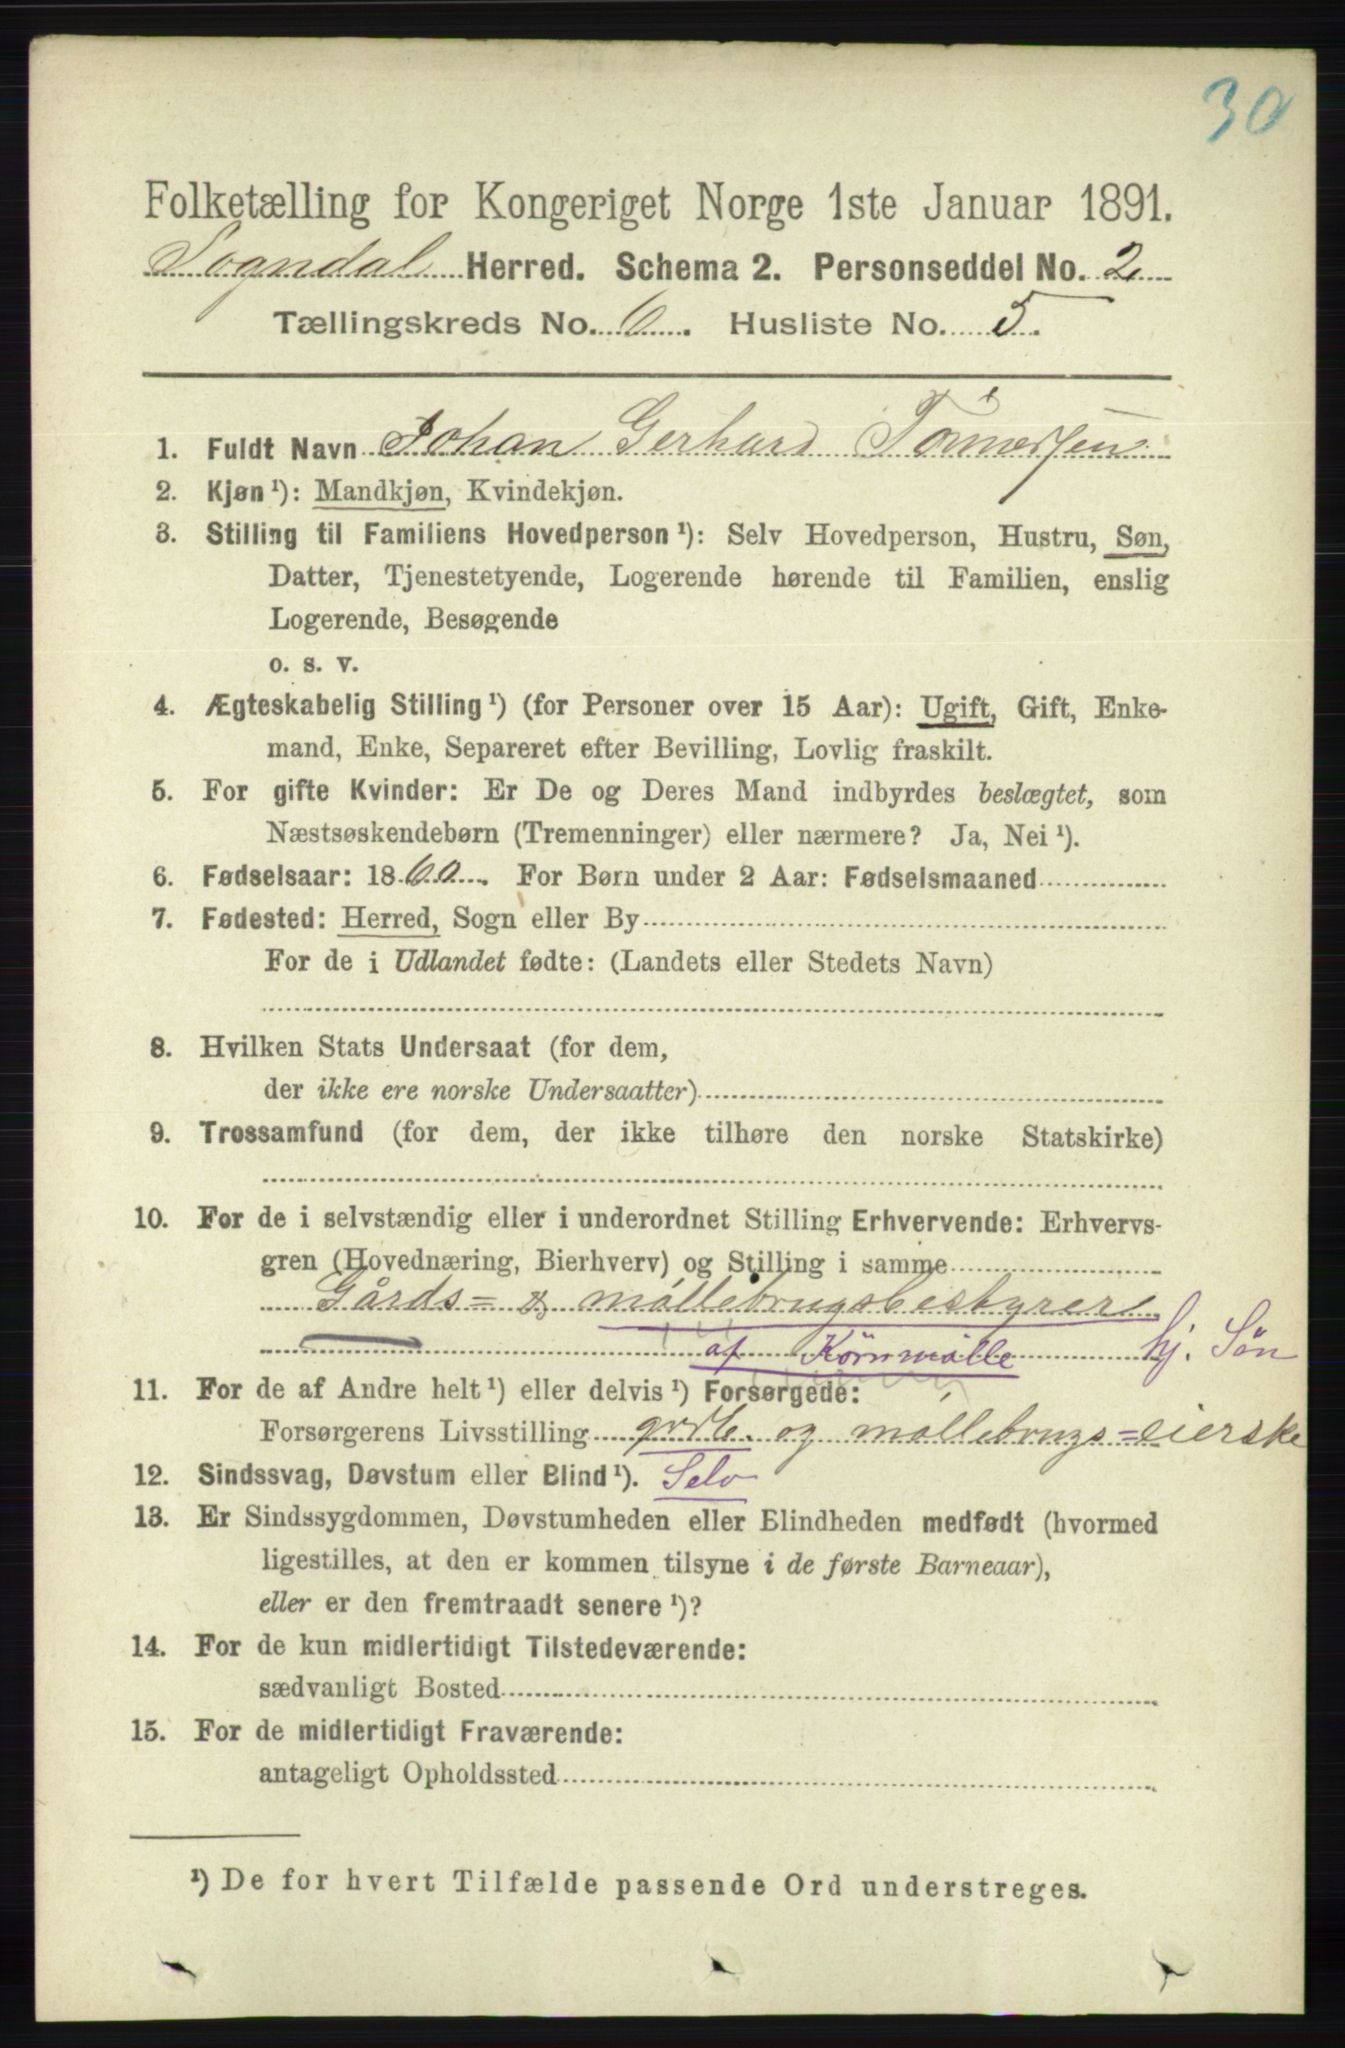 30
Folketælling for Kongeriget Norge 1ste Januar 1891.
Sogndal Herred. Schema 2. Personseddel No. 2
Tællingskreds No. 6. Husliste No. 5.
1. Fuldt Navn Johan Gerhard
2. Kjøn ¹): Mandkjøn, Kvindekjøn.
3. Stilling til Familiens Hovedperson ¹): Selv Hovedperson, Hustru, Søn,
Datter, Tjenestetyende, Logerende hørende til Familien, enslig
Logerende, Besøgende
o. s. v.
4. Ægteskabelig Stilling ¹) (for Personer over 15 Aar): Ugift, Gift, Enke-
mand, Enke, Separeret efter Bevilling, Lovlig fraskilt.
5. For gifte Kvinder: Er De og Deres Mand indbyrdes beslægtet, som
Næstsøskendebørn (Tremenninger) eller nærmere? Ja, Nei ¹).
6. Fødselsaar: 1860. For Børn under 2 Aar: Fødselsmaaned
7. Fødested: Herred, Sogn eller By
For de i Udlandet fødte: (Landets eller Stedets Navn)
8. Hvilken Stats Undersaat (for dem,
der ikke ere norske Undersaatter)
9. Trossamfund (for dem, der ikke tilhøre den norske Statskirke)
10. For de i selvstændig eller i underordnet Stilling Erhvervende: Erhvervs-
gren (Hovednæring, Bierhverv) og Stilling i samme
Gårds= & møllebrugsbestyrere
af Kornmølle hj. Søn
11. For de af Andre helt ¹) eller delvis ¹) Forsørgede:
Forsørgerens Livsstilling grdb. og møllebrugs=eierske
12. Sindssvag, Døvstum eller Blind ¹). Selv
13. Er Sindssygdommen, Døvstumheden eller Blindheden medfødt (hvormed
ligestilles, at den er kommen tilsyne i de første Barneaar),
eller er den fremtraadt senere ¹)?
14. For de kun midlertidigt Tilstedeværende:
sædvanligt Bosted
15. For de midlertidigt Fraværende:
antageligt Opholdssted
¹) De for hvert Tilfælde passende Ord understreges.